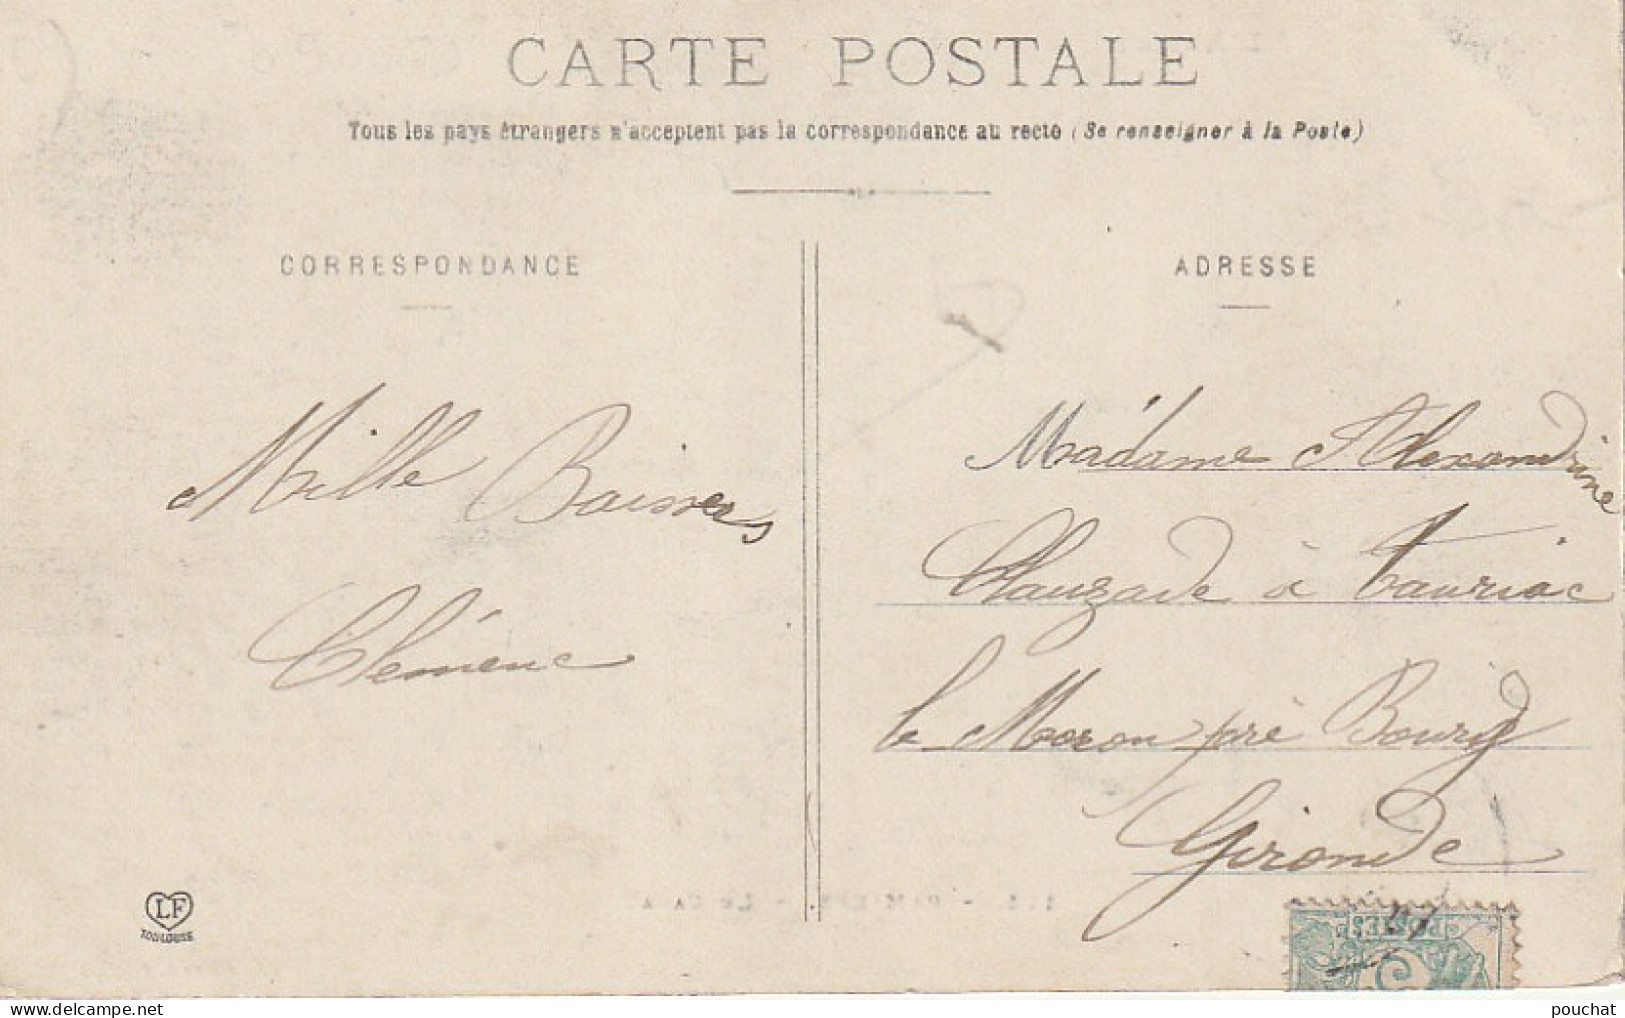 CARTE POSTALE
Tous les pays étrangers n'acceptent pas la correspondance au recto (Se renseigner à la Poste)
CORRESPONDANCE
Mille Baisers
Clémence
LF
TOULOUSE
ADRESSE
Madame Alexandrine
Clauzade à Tauriac
le Moron pré Bourg
Gironde
POSTES
pouchat